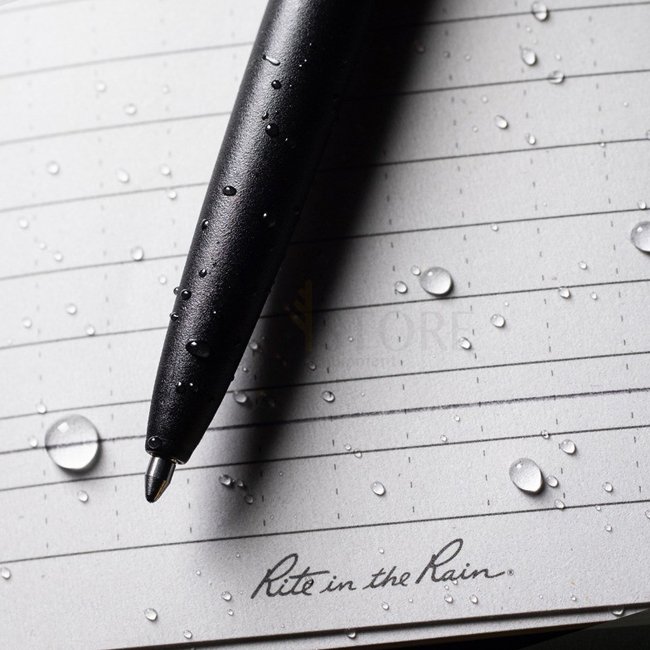 STORE
Rite in the Rain®